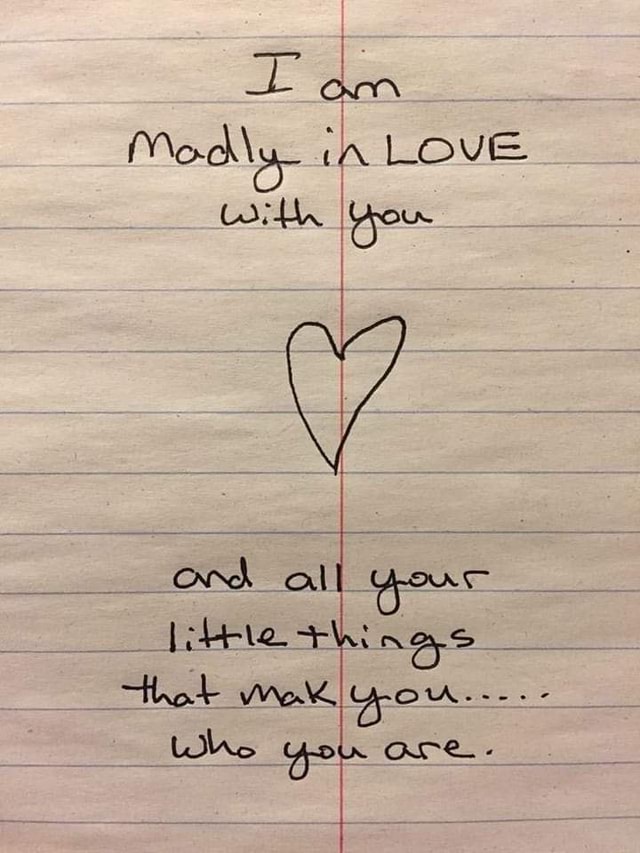 I am
Madly in LOVE
with you
and all your
little things
that mak you.....
who you are.